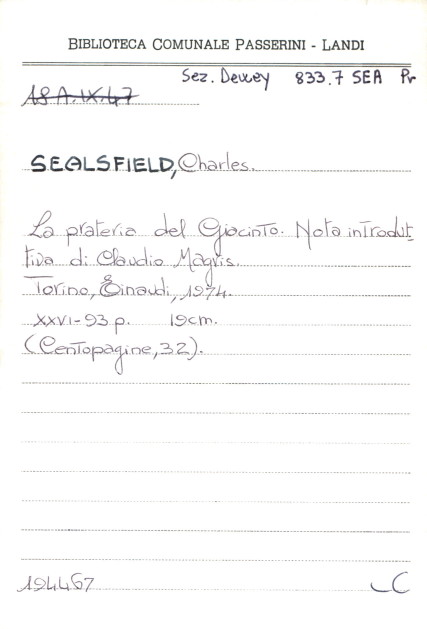 BIBLIOTECA COMUNALE PASSERINI - LANDI
Sez. Dewey 833.7 SEA Pr
18 A.IX.47
SEALSFIELD, Charles.
La prateria del Giacinto. Nota introdut
tiva di Claudio Magris.
Torino, Einaudi, 1974.
XXVI-93 p. 19cm.
(Centopagine, 32).
194467